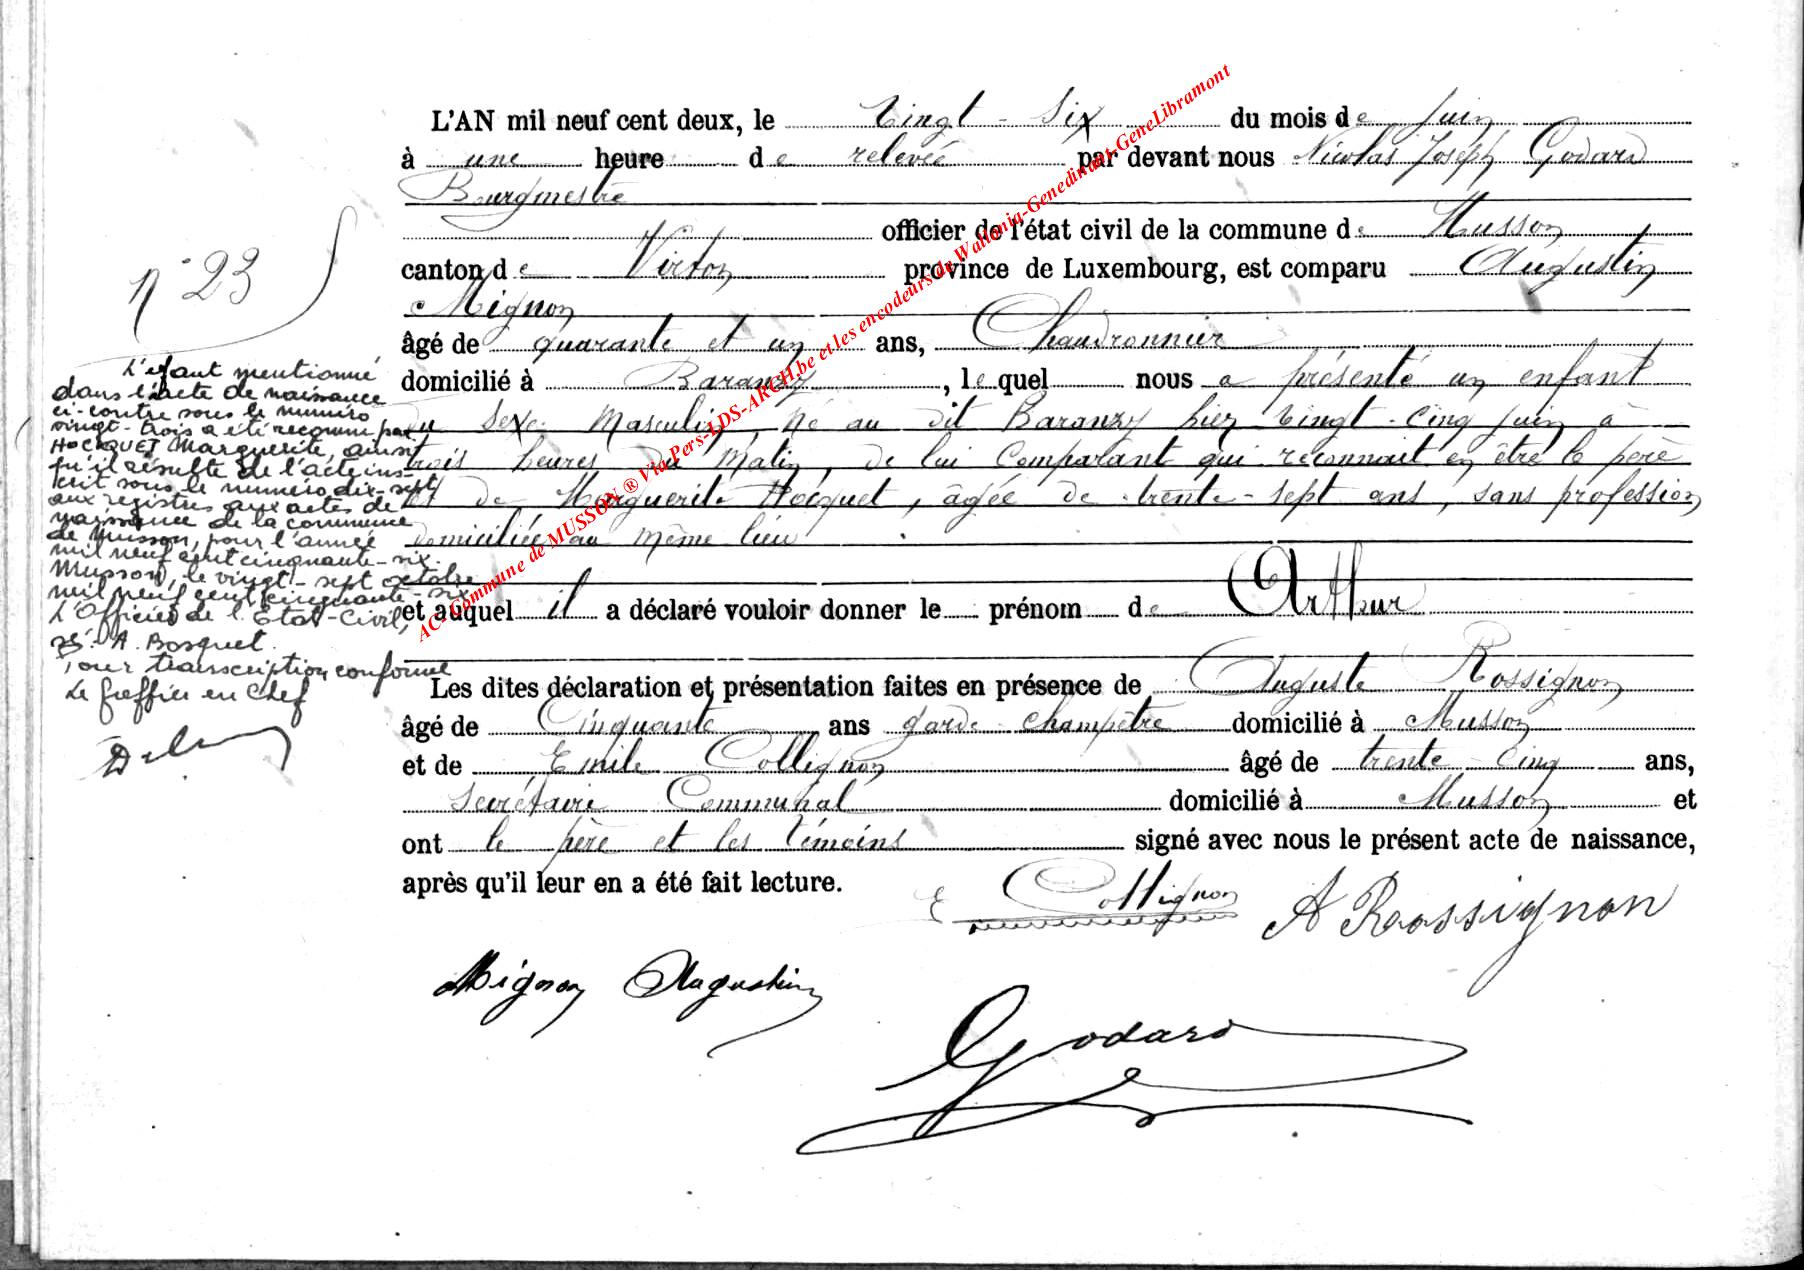 L'AN mil neuf cent deux, le Vingt-Six du mois de Juin
à une heure de relevée par devant nous Nicolas Joseph Godard
Bourgmestre
officier de l'état civil de la commune de Musson
canton de Virton province de Luxembourg, est comparu Augustin
Mignon
âgé de quarante et un ans, Chaudronnier
domicilié à Baranzy, le quel nous a présenté un enfant
du Sexe Masculin, né au dit Baranzy hier vingt-cinq juin à
trois heures du Matin, de lui Comparant qui reconnait en être le père
et de Marguerite Hocquet, âgée de trente-sept ans, sans profession
domiciliée au même lieu
et auquel il a déclaré vouloir donner le prénom de Arthur
Les dites déclaration et présentation faites en présence de Auguste Rossignon
âgé de Cinquante ans garde-champêtre domicilié à Musson
et de Emile Collignon âgé de trente-cinq ans,
Secrétaire Communal domicilié à Musson et
ont le père et les témoins signé avec nous le présent acte de naissance,
après qu'il leur en a été fait lecture.
E Collignon A Rossignon
Mignon Augustin
Godard
n° 23
L'efant mentionné
dans l'acte de naissance
ci-contre sous le numéro
vingt-trois a été reconnu par
HOCQUET Marguerite, ainsi
qu'il résulte de l'acte ins-
crit sous le numéro dix-sept
aux registres aux actes de
naissance de la commune
de Musson, pour l'année
mil neuf cent cinquante-six.
Musson, le vingt-sept octobre
mil neuf cent cinquante-six
L'Officier de l'Etat-Civil,
sé. A. Bosquet.
Pour transcription conforme
Le Greffier en Chef
AC. Commune de MUSSON ® Via Pers-LDS-ARCH.be et les encodeurs de Wallonia-Genedinant-GeneLibramont